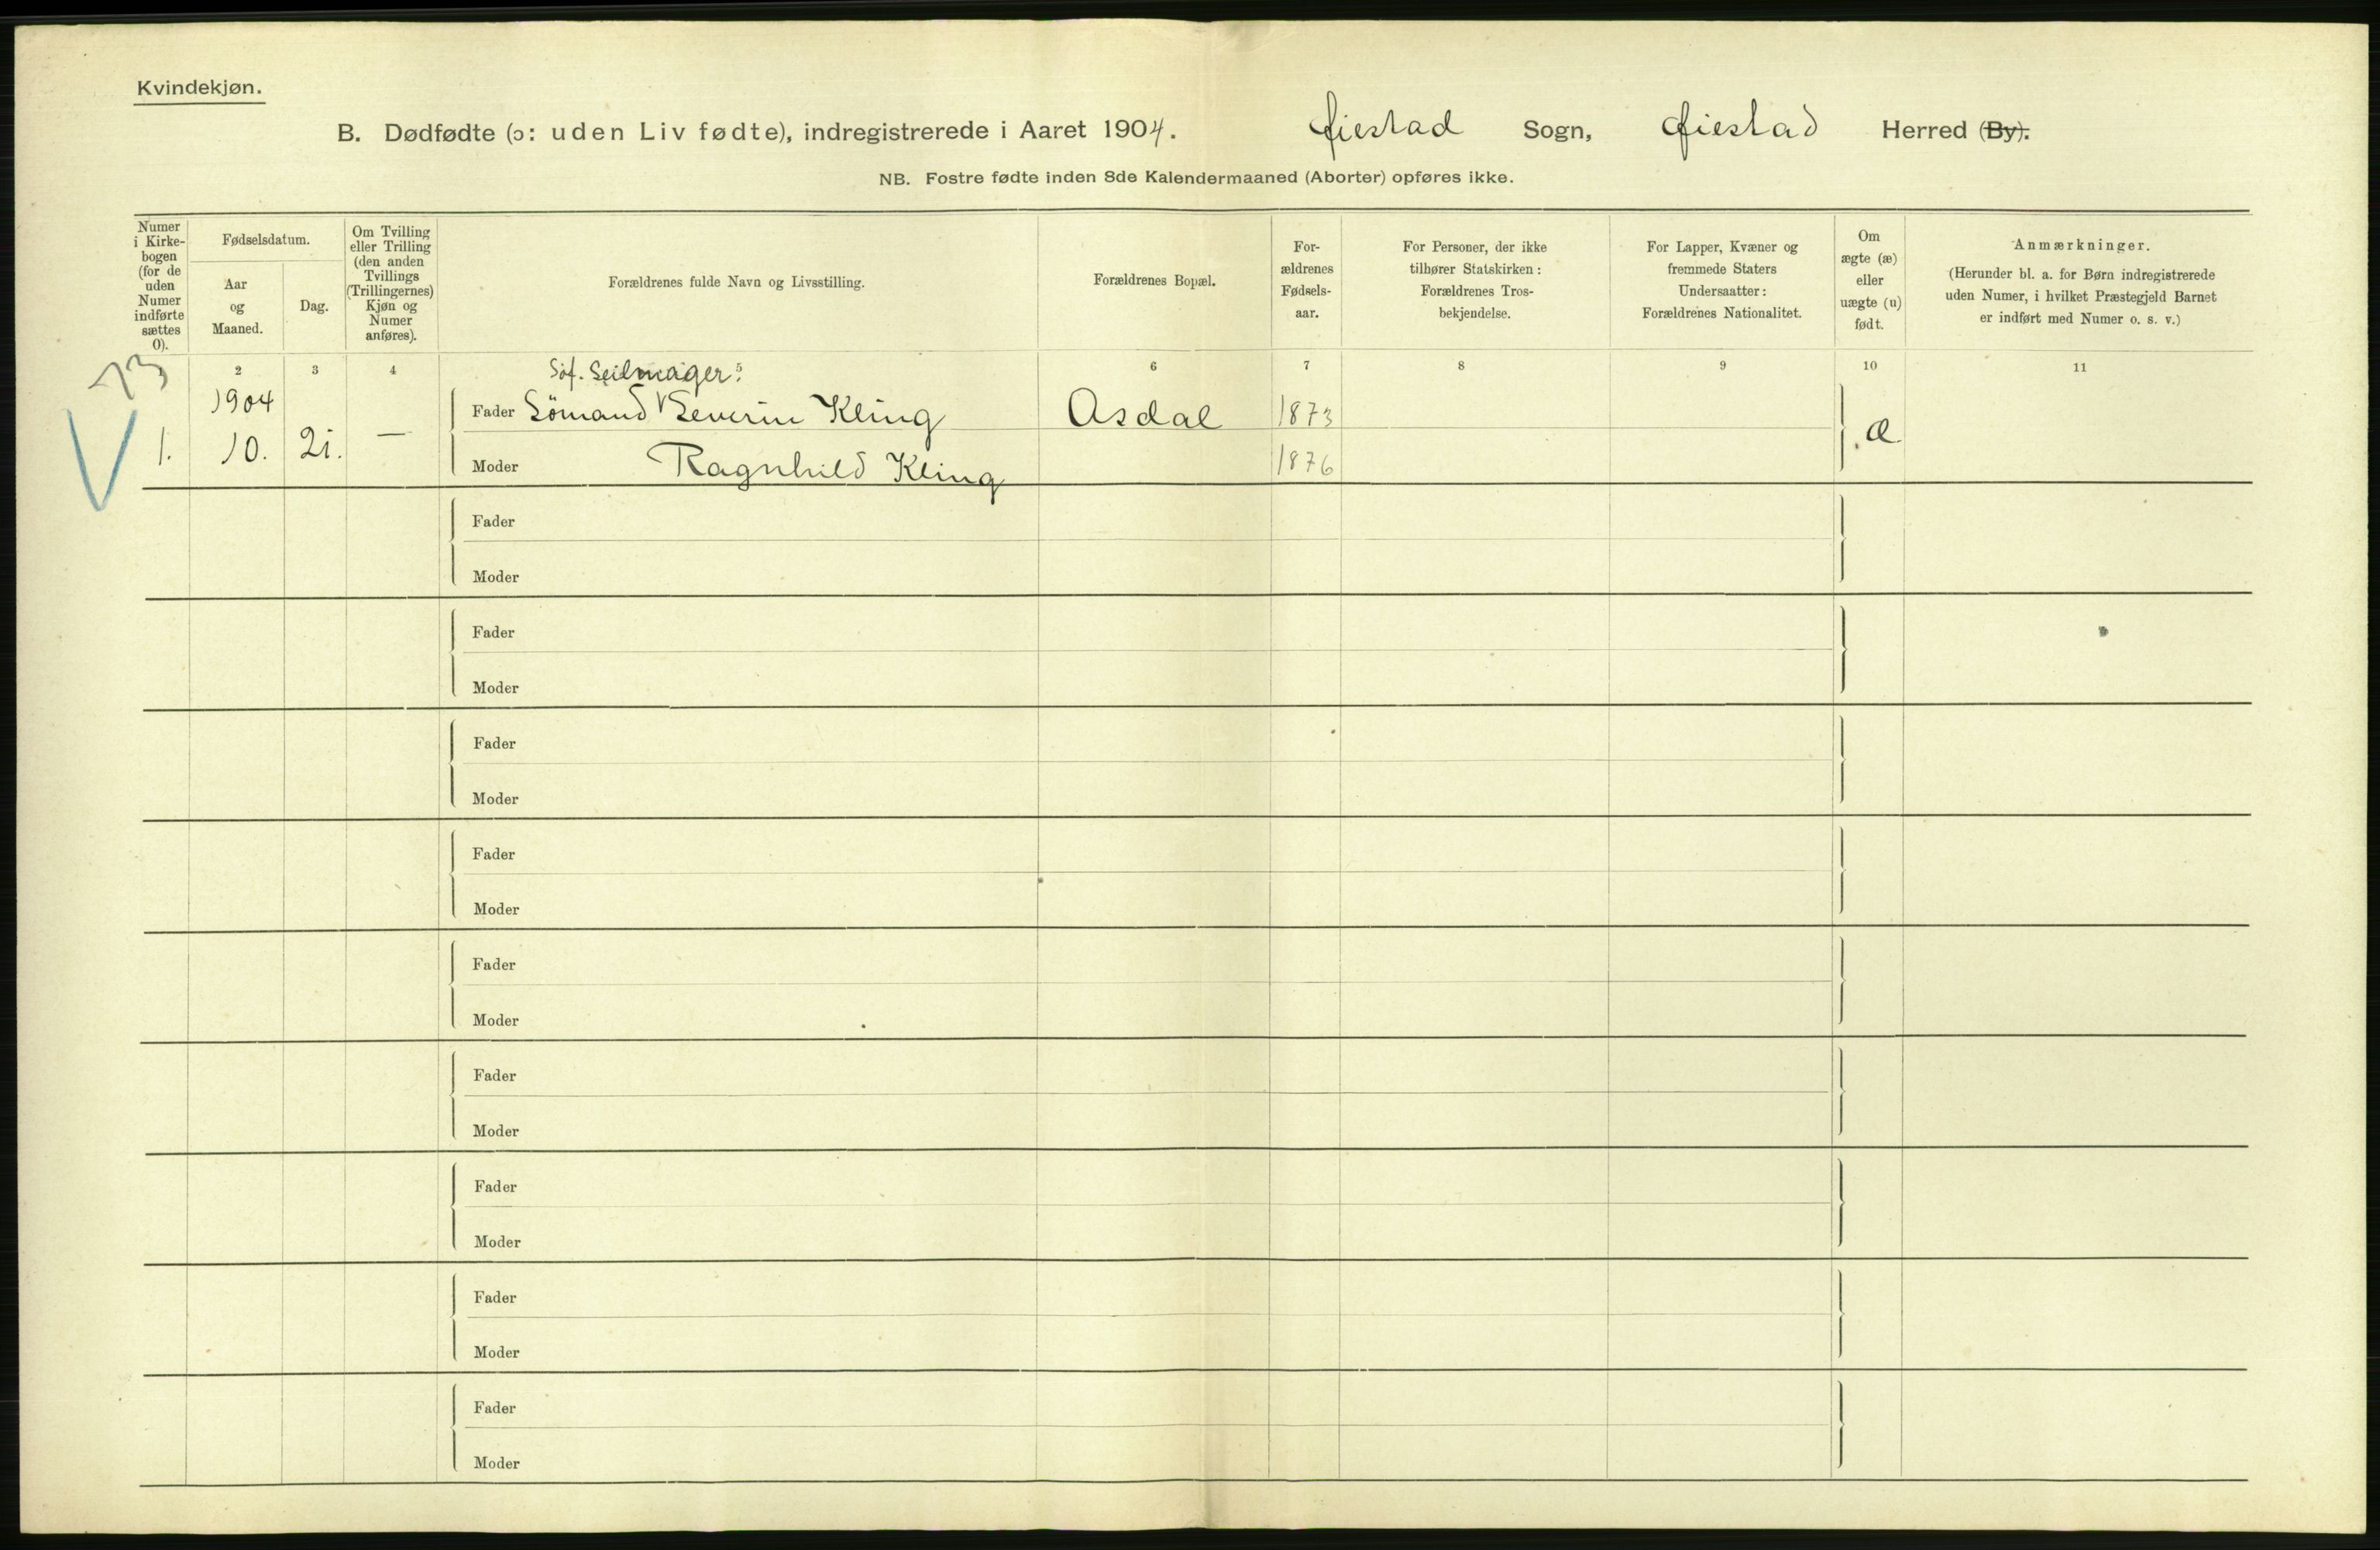 Kvindekjøn.
B. Dødfødte (ɔ: uden Liv fødte), indregistrerede i Aaret 1904. Øiestad Sogn, Øiestad Herred (By).
NB. Fostre fødte inden 8de Kalendermaaned (Aborter) opføres ikke.
Numer i Kirke-bogen (for de uden Numer indførte sættes 0).
Fødselsdatum.
Aar og Maaned.
Dag.
Om Tvilling eller Trilling (den anden Tvillings (Trillingernes) Kjøn og Numer anføres).
Forældrenes fulde Navn og Livsstilling.
Forældrenes Bopæl.
For-ældrenes Fødsels-aar.
For Personer, der ikke tilhører Statskirken: Forældrenes Tros-bekjendelse.
For Lapper, Kvæner og fremmede Staters Undersaatter: Forældrenes Nationalitet.
Om ægte (æ) eller uægte (u) født.
Anmærkninger.
(Herunder bl. a. for Børn indregistrerede uden Numer, i hvilket Præstegjeld Barnet er indført med Numer o. s. v.)
2 3 4 5 6 7 8 9 10 11
13
Söf. Seilmager
1904
Fader Sömand Severin Kling Asdal 1873
1. 10. 21. — æ
Moder Ragnhild Kling 1876
Fader
Moder
Fader
Moder
Fader
Moder
Fader
Moder
Fader
Moder
Fader
Moder
Fader
Moder
Fader
Moder
Fader
Moder